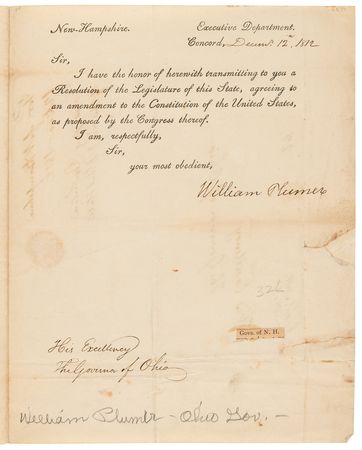 New-Hampshire. Executive Department.
Concord, Decemr. 12th, 1812
Sir,
I have the honor of herewith transmitting to you a
Resolution of the Legislature of this State, agreeing to
an amendment to the Constitution of the United States,
as proposed by the Congress thereof.
I am, respectfully,
Sir,
your most obedient,
William Plumer
326
Govn. of N. H.
His Excellency
The Governor of Ohio
William Plumer - Ohio Gov. -